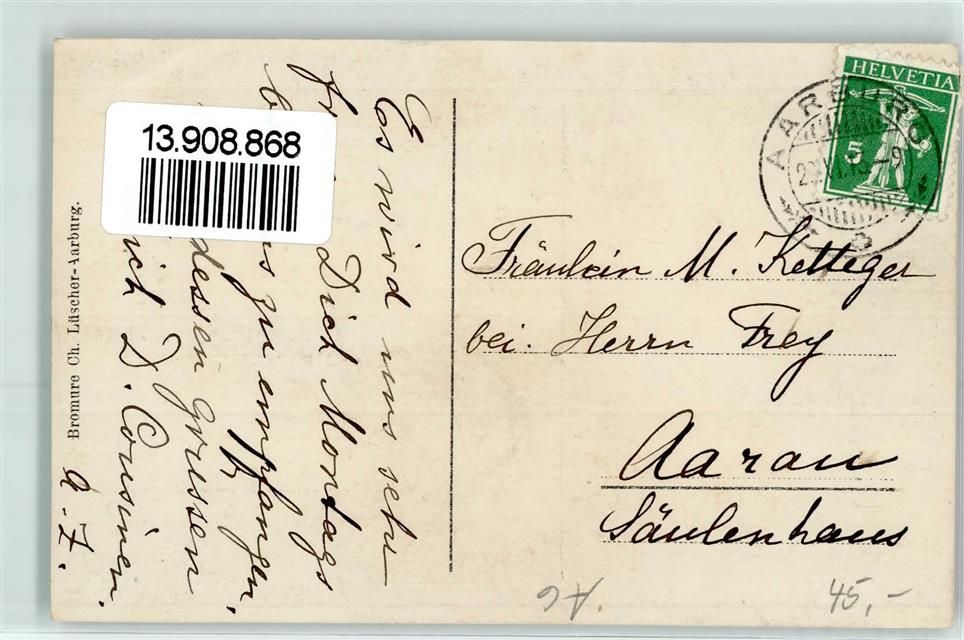 13.908.868
Bromure Ch. Lüscher-Aarburg.
Es wird uns sehr
Dich Montags
zu empfangen.
dessen grüssen
Dich D. Cousinen.
HELVETIA
5
AARBURG
Fräulein M. Ketteger
bei Herrn Frey
Aarau
Säulenhaus
45,-